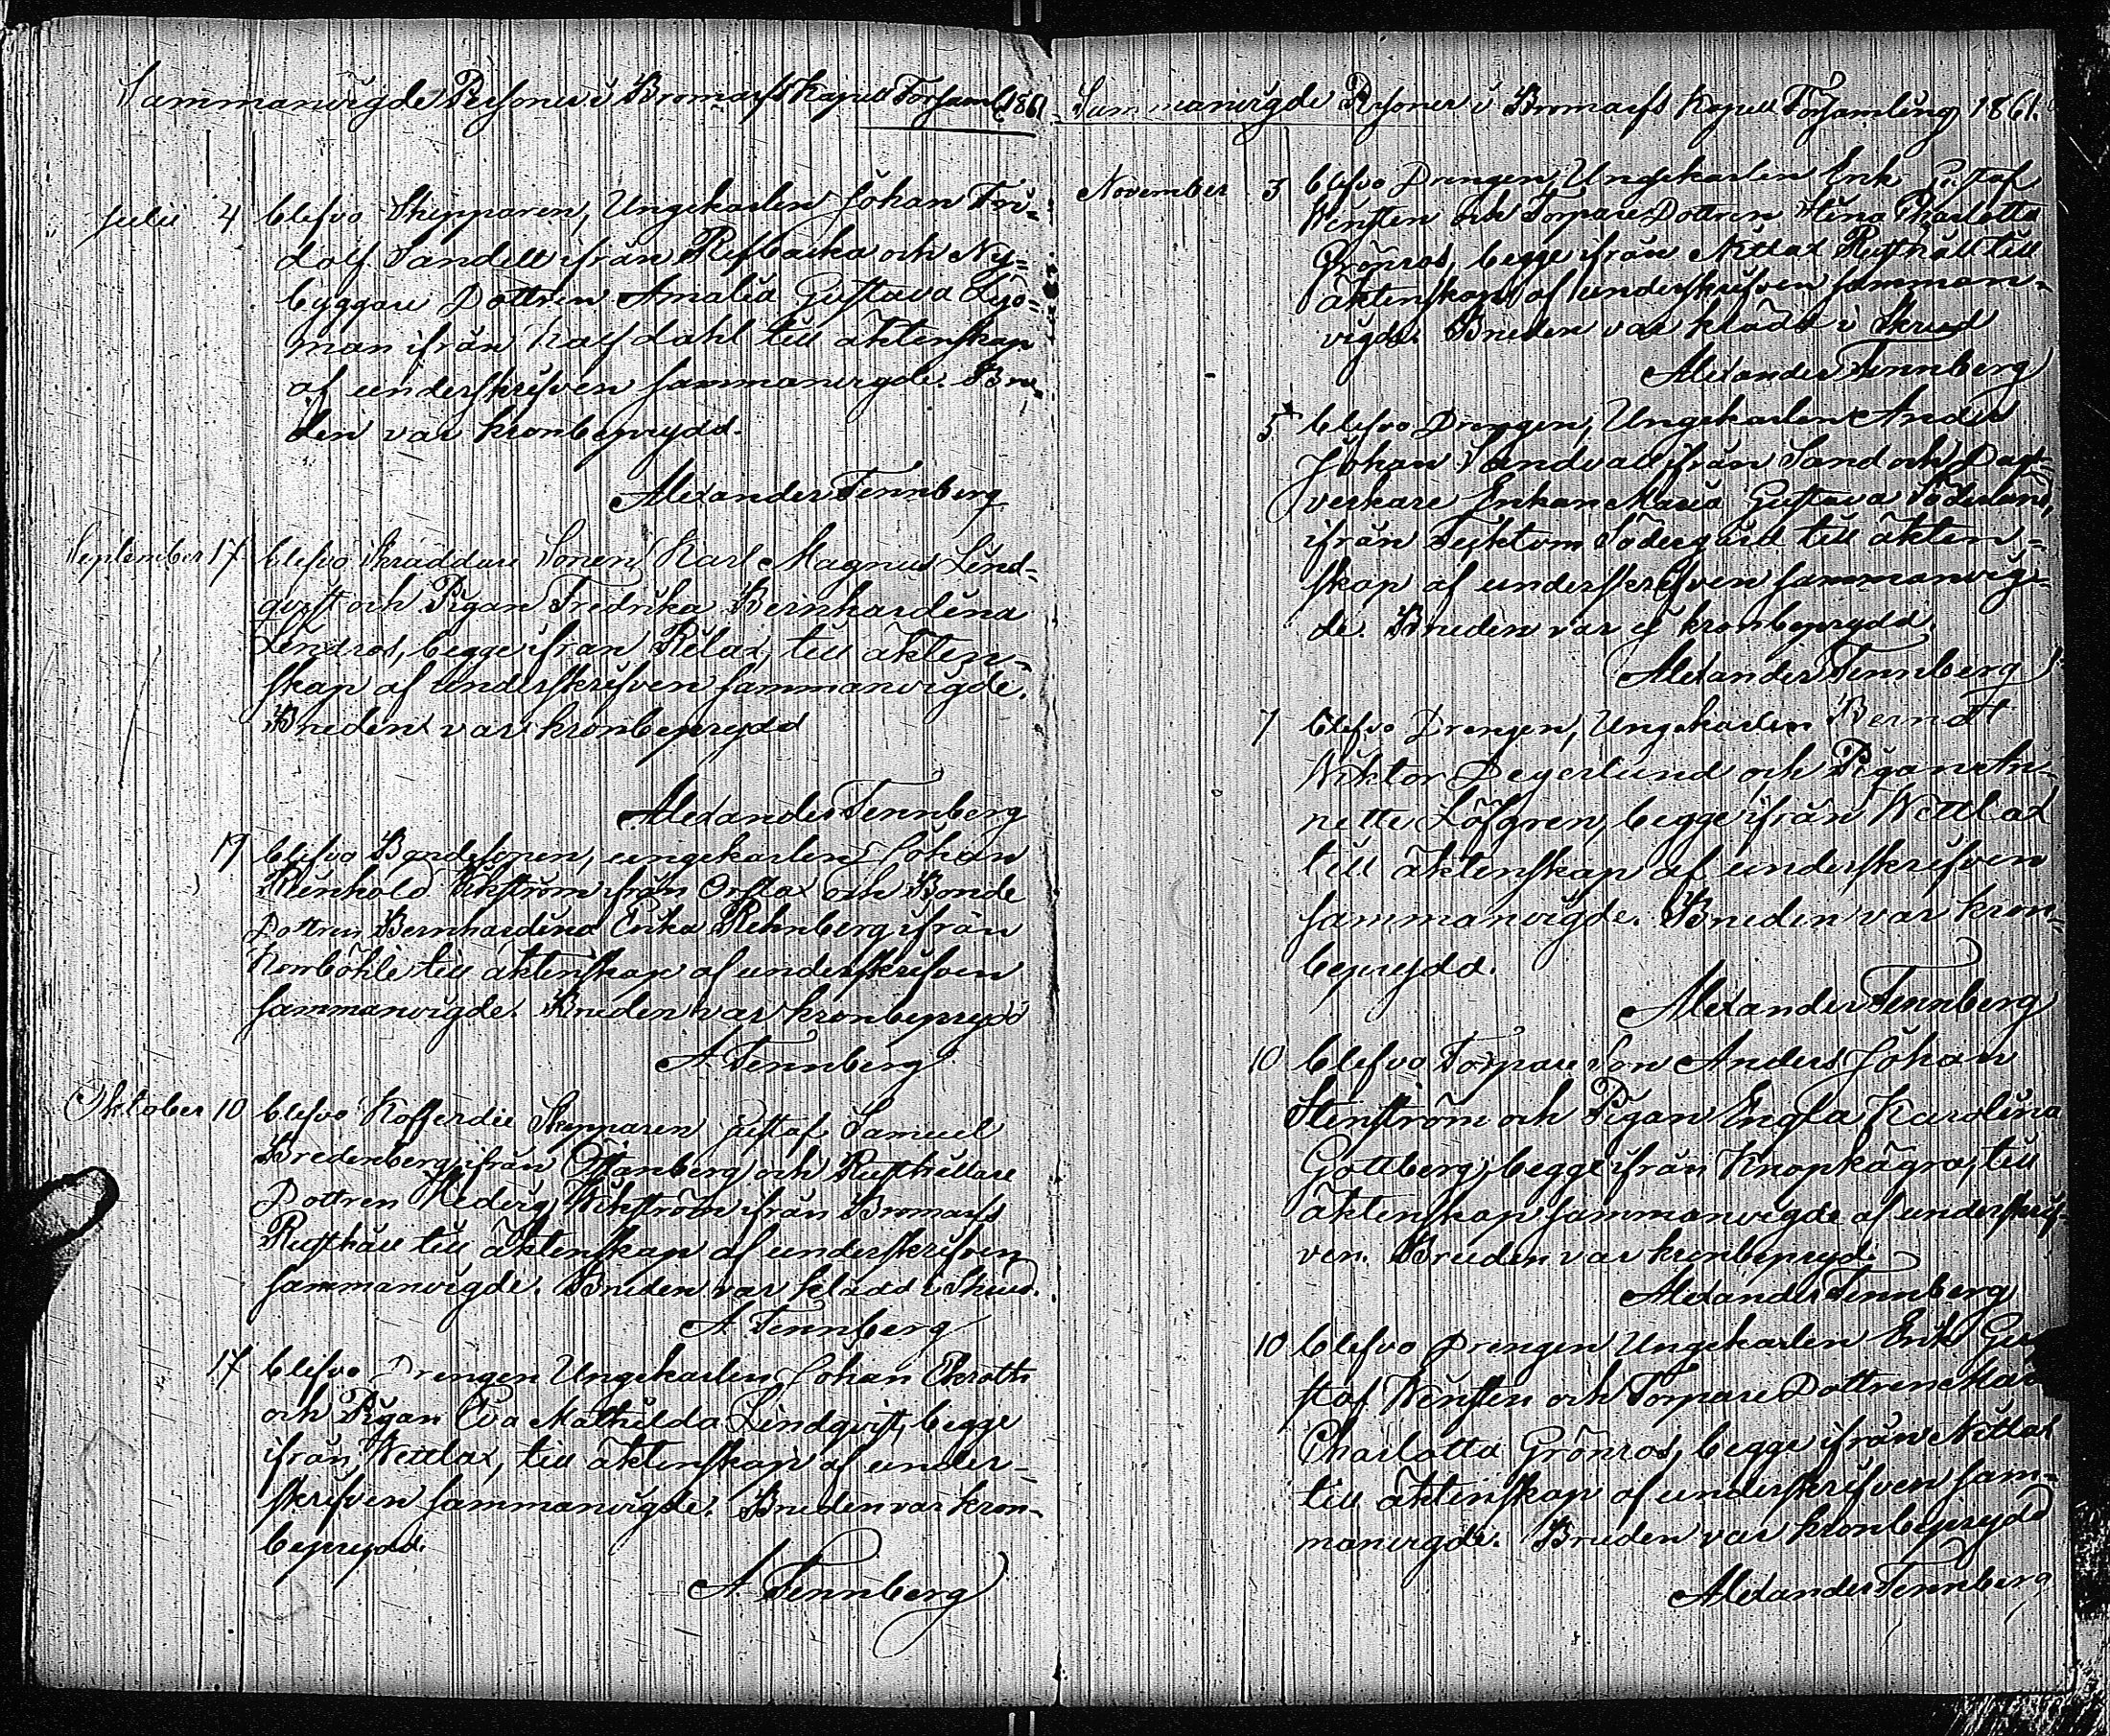 Sammanvigde Personer i Bromarfs Kapell Församl. 1861
Julii 4 blefvo Skepparen, Ungekarlen Johan Fri-
dolf Sandell ifrån Refbacka och Ny-
byggare Dottren Amalia Gustava Sjö-
man ifrån Kalfdahl till äktenskap
af underskrifven sammanvigde. Bru-
den var kronbeprydd.
Alexander Tennberg
September 17 blefvo Skräddare Sonen Karl Magnus Lind-
qvist och Pigan Fredrika Bernhardina
Lindros, begge ifrån Rilax, till äkten-
skap af underskrifven sammanvigde.
Bruden var kronbeprydd
Alexander Tennberg
19 blefvo Bondesonen, ungekarlen Johan
Reinhold Wikström ifrån Orslax och Bonde
Dottren Bernhardina Erika Rehnberg ifrån
Norrböhle till äktenskap af underskrifven
sammanvigde. Bruden var kronbeprydd
A. Tennberg
Oktober 10 blefvo Kofferdie Skepparen Gustaf Samuel
Bredenberg ifrån Östanberg och Rusthållare
Dottren Hedvig Wikström ifrån Bromarfs
Rusthåll till äktenskap af underskrifven
sammanvigde. Bruden var klädd i Skrud.
A. Tennberg
17 blefvo Drengen Ungekarlen Johan Ekroth
och Pigan Eva Mathilda Lindqvist, begge
ifrån Wettlax, till äktenskap af under-
skrifven sammanvigde. Bruden var kron-
beprydd.
A. Tennberg
Sammanvigde Personer i Bromarfs Kapell Församling 1861.
November 3 blefvo Drengen, Ungekarlen Erik Gustaf
Wensten och Torpare Dottren Charlotta
Grönros, begge ifrån Nittlax Rusthåll till
äktenskap af underskrifven samman-
vigde. Bruden var klädd i Skrud
Alexander Tennberg
5 blefvo Drengen, Ungekarlen Anders
Johan Sandvall ifrån Sand och Dag-
verkare Enkan Maria Gustava Söderlund,
ifrån Södergård till äkten-
skap af underskrifven sammanvig-
de. Bruden var ej kronbeprydd.
Alexander Tennberg
7 blefvo Drengen, Ungekarlen Berndt
Viktor Degerlund och Pigan An-
nette Löfgren, begge ifrån Wettlax
till äktenskap af underskrifven
sammanvigde. Bruden var kron-
beprydd.
Alexander Tennberg
10 blefvo Torpare Son Anders Johan
Stenström och Pigan Engla Karolina
Gottberg, begge ifrån Knopkägra, till
äktenskap sammanvigde af underskrif-
ven. Bruden var kronbeprydd
Alexander Tennberg
10 blefvo Drengen Ungekarlen Erik Gu-
staf Wensten och Torpare Dottren
Charlotta Grönros, begge ifrån Nittlax
till äktenskap af underskrifven sam-
manvigde. Bruden var kronbeprydd
Alexander Tennberg